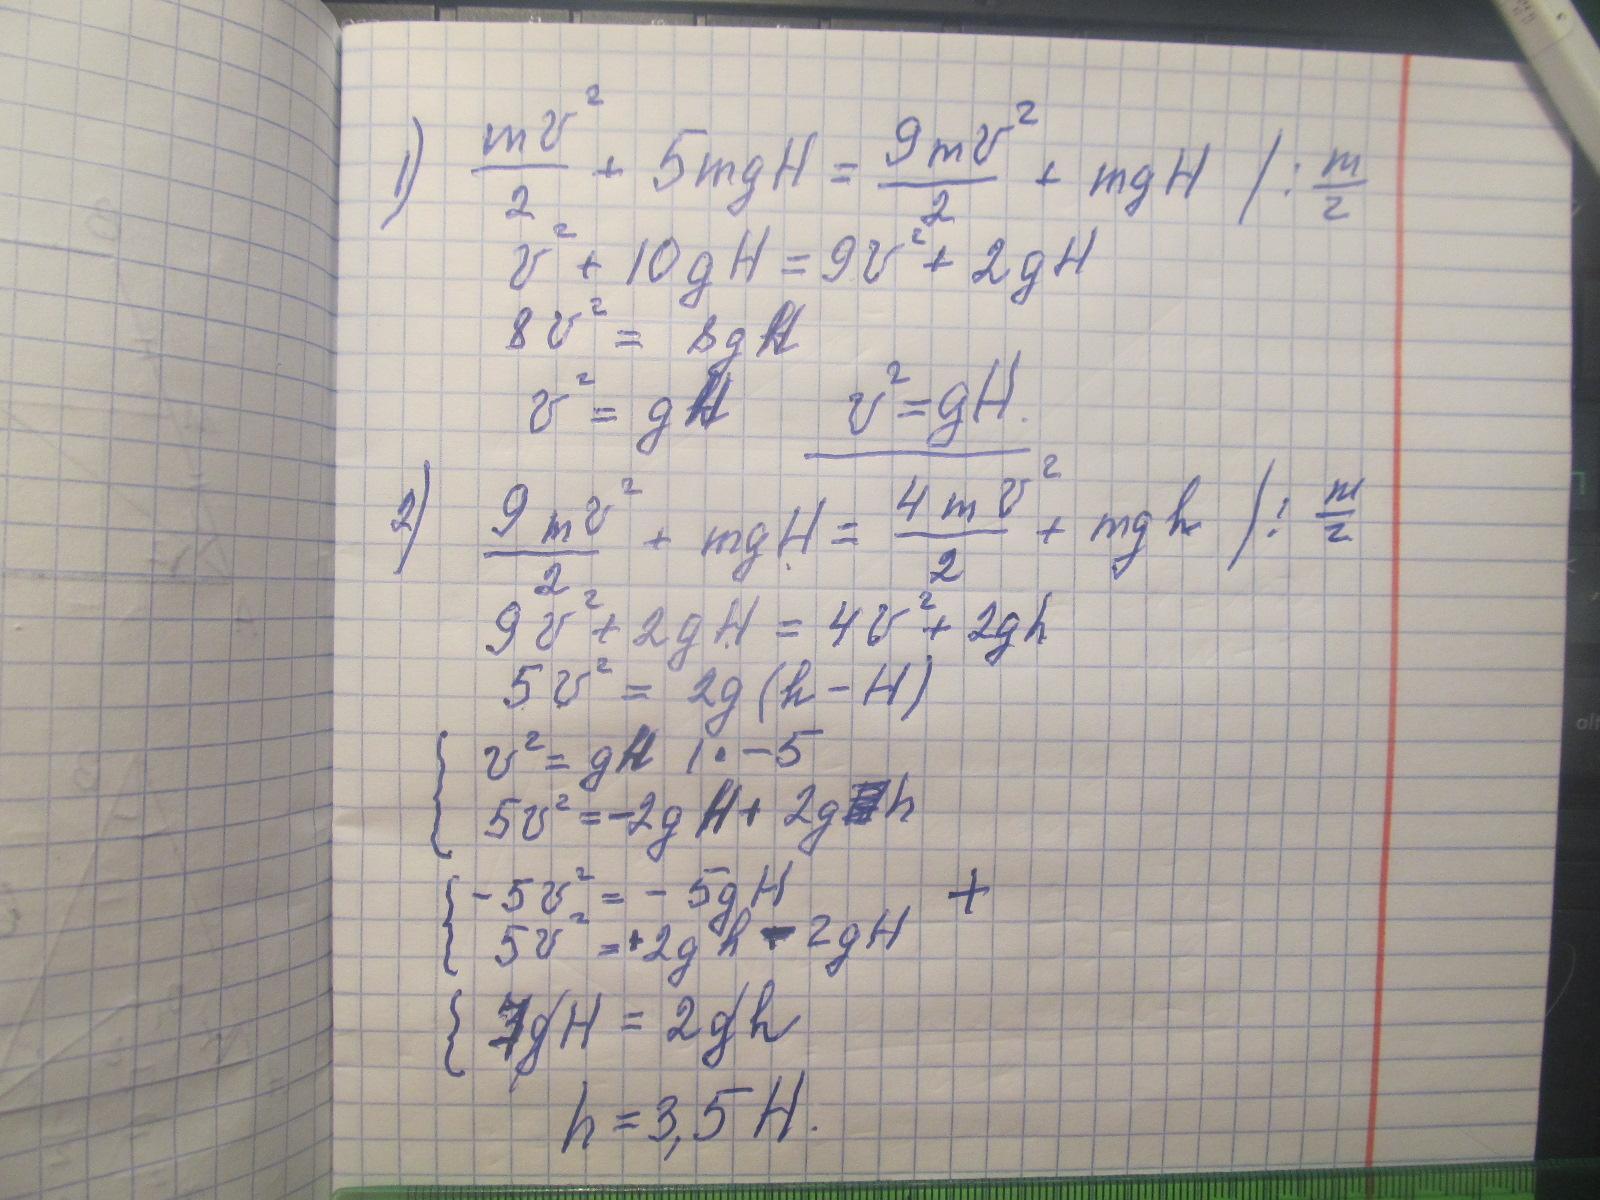 1) mv²/2 + 5mgH = 9mv²/2 + mgH /: m/2
v² + 10gH = 9v² + 2gH
8v² = 8gH
v² = gH v² = gH.
2) 9mv²/2 + mgH = 4mv²/2 + mgh /: m/2
9v² + 2gH = 4v² + 2gh
5v² = 2g(h - H)
{ v² = gH |· -5
5v² = -2gH + 2gh
{ -5v² = -5gH +
5v² = +2gh - 2gH
{ 7gH = 2gh
h = 3,5H.